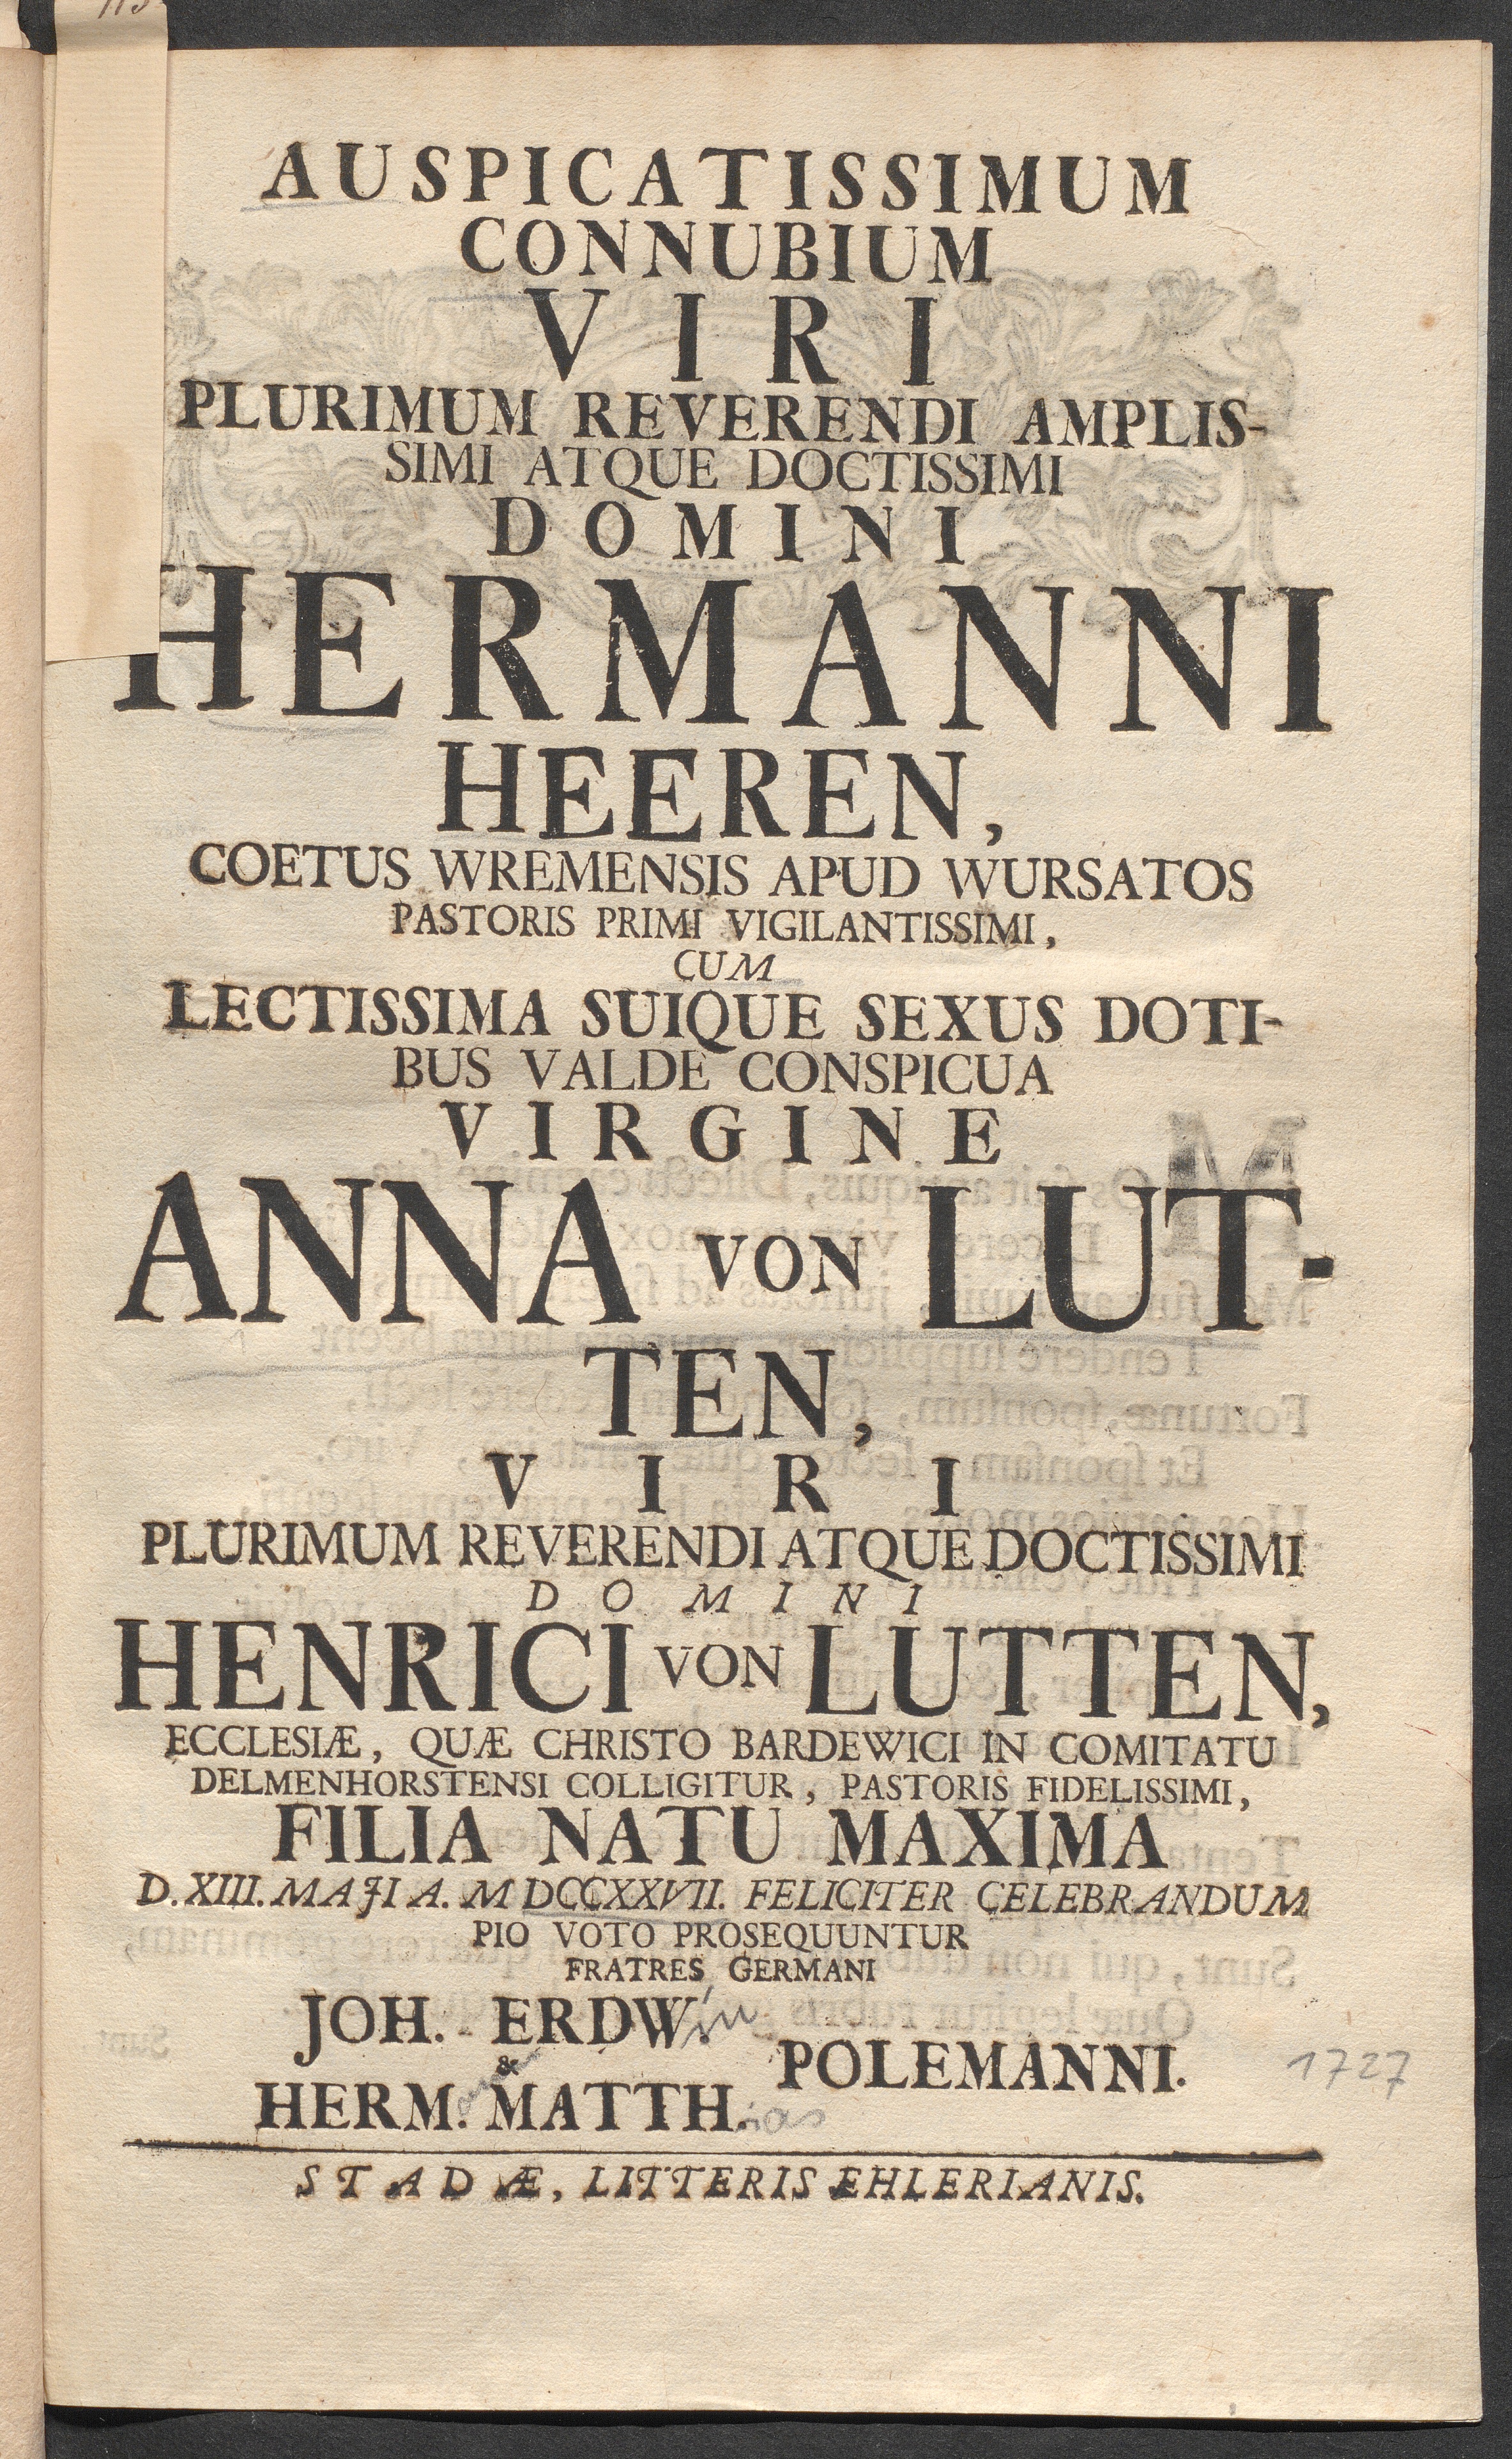 AUSPICATISSIMUM
CONNUBIUM
VIRI
PLURIMUM REVERENDI AMPLIS-
SIMI ATQUE DOCTISSIMI
DOMINI
HERMANNI
HEEREN,
COETUS WREMENSIS APUD WURSATOS
PASTORIS PRIMI VIGILANTISSIMI,
CUM
LECTISSIMA SUIQUE SEXUS DOTI-
BUS VALDE CONSPICUA
VIRGINE
ANNA VON LUT-
TEN,
VIRI
PLURIMUM REVERENDI ATQUE DOCTISSIMI
DOMINI
HENRICI VON LUTTEN,
ECCLESIÆ, QUÆ CHRISTO BARDEWICI IN COMITATU
DELMENHORSTENSI COLLIGITUR, PASTORIS FIDELISSIMI,
FILIA NATU MAXIMA
D. XIII. MAJI A. MDCCXXVII. FELICITER CELEBRANDUM
PIO VOTO PROSEQUUNTUR
FRATRES GERMANI
JOH. ERDW. in
&
POLEMANNI.
1727
HERM. MATTH. ias
STADÆ, LITTERIS EHLERIANIS.